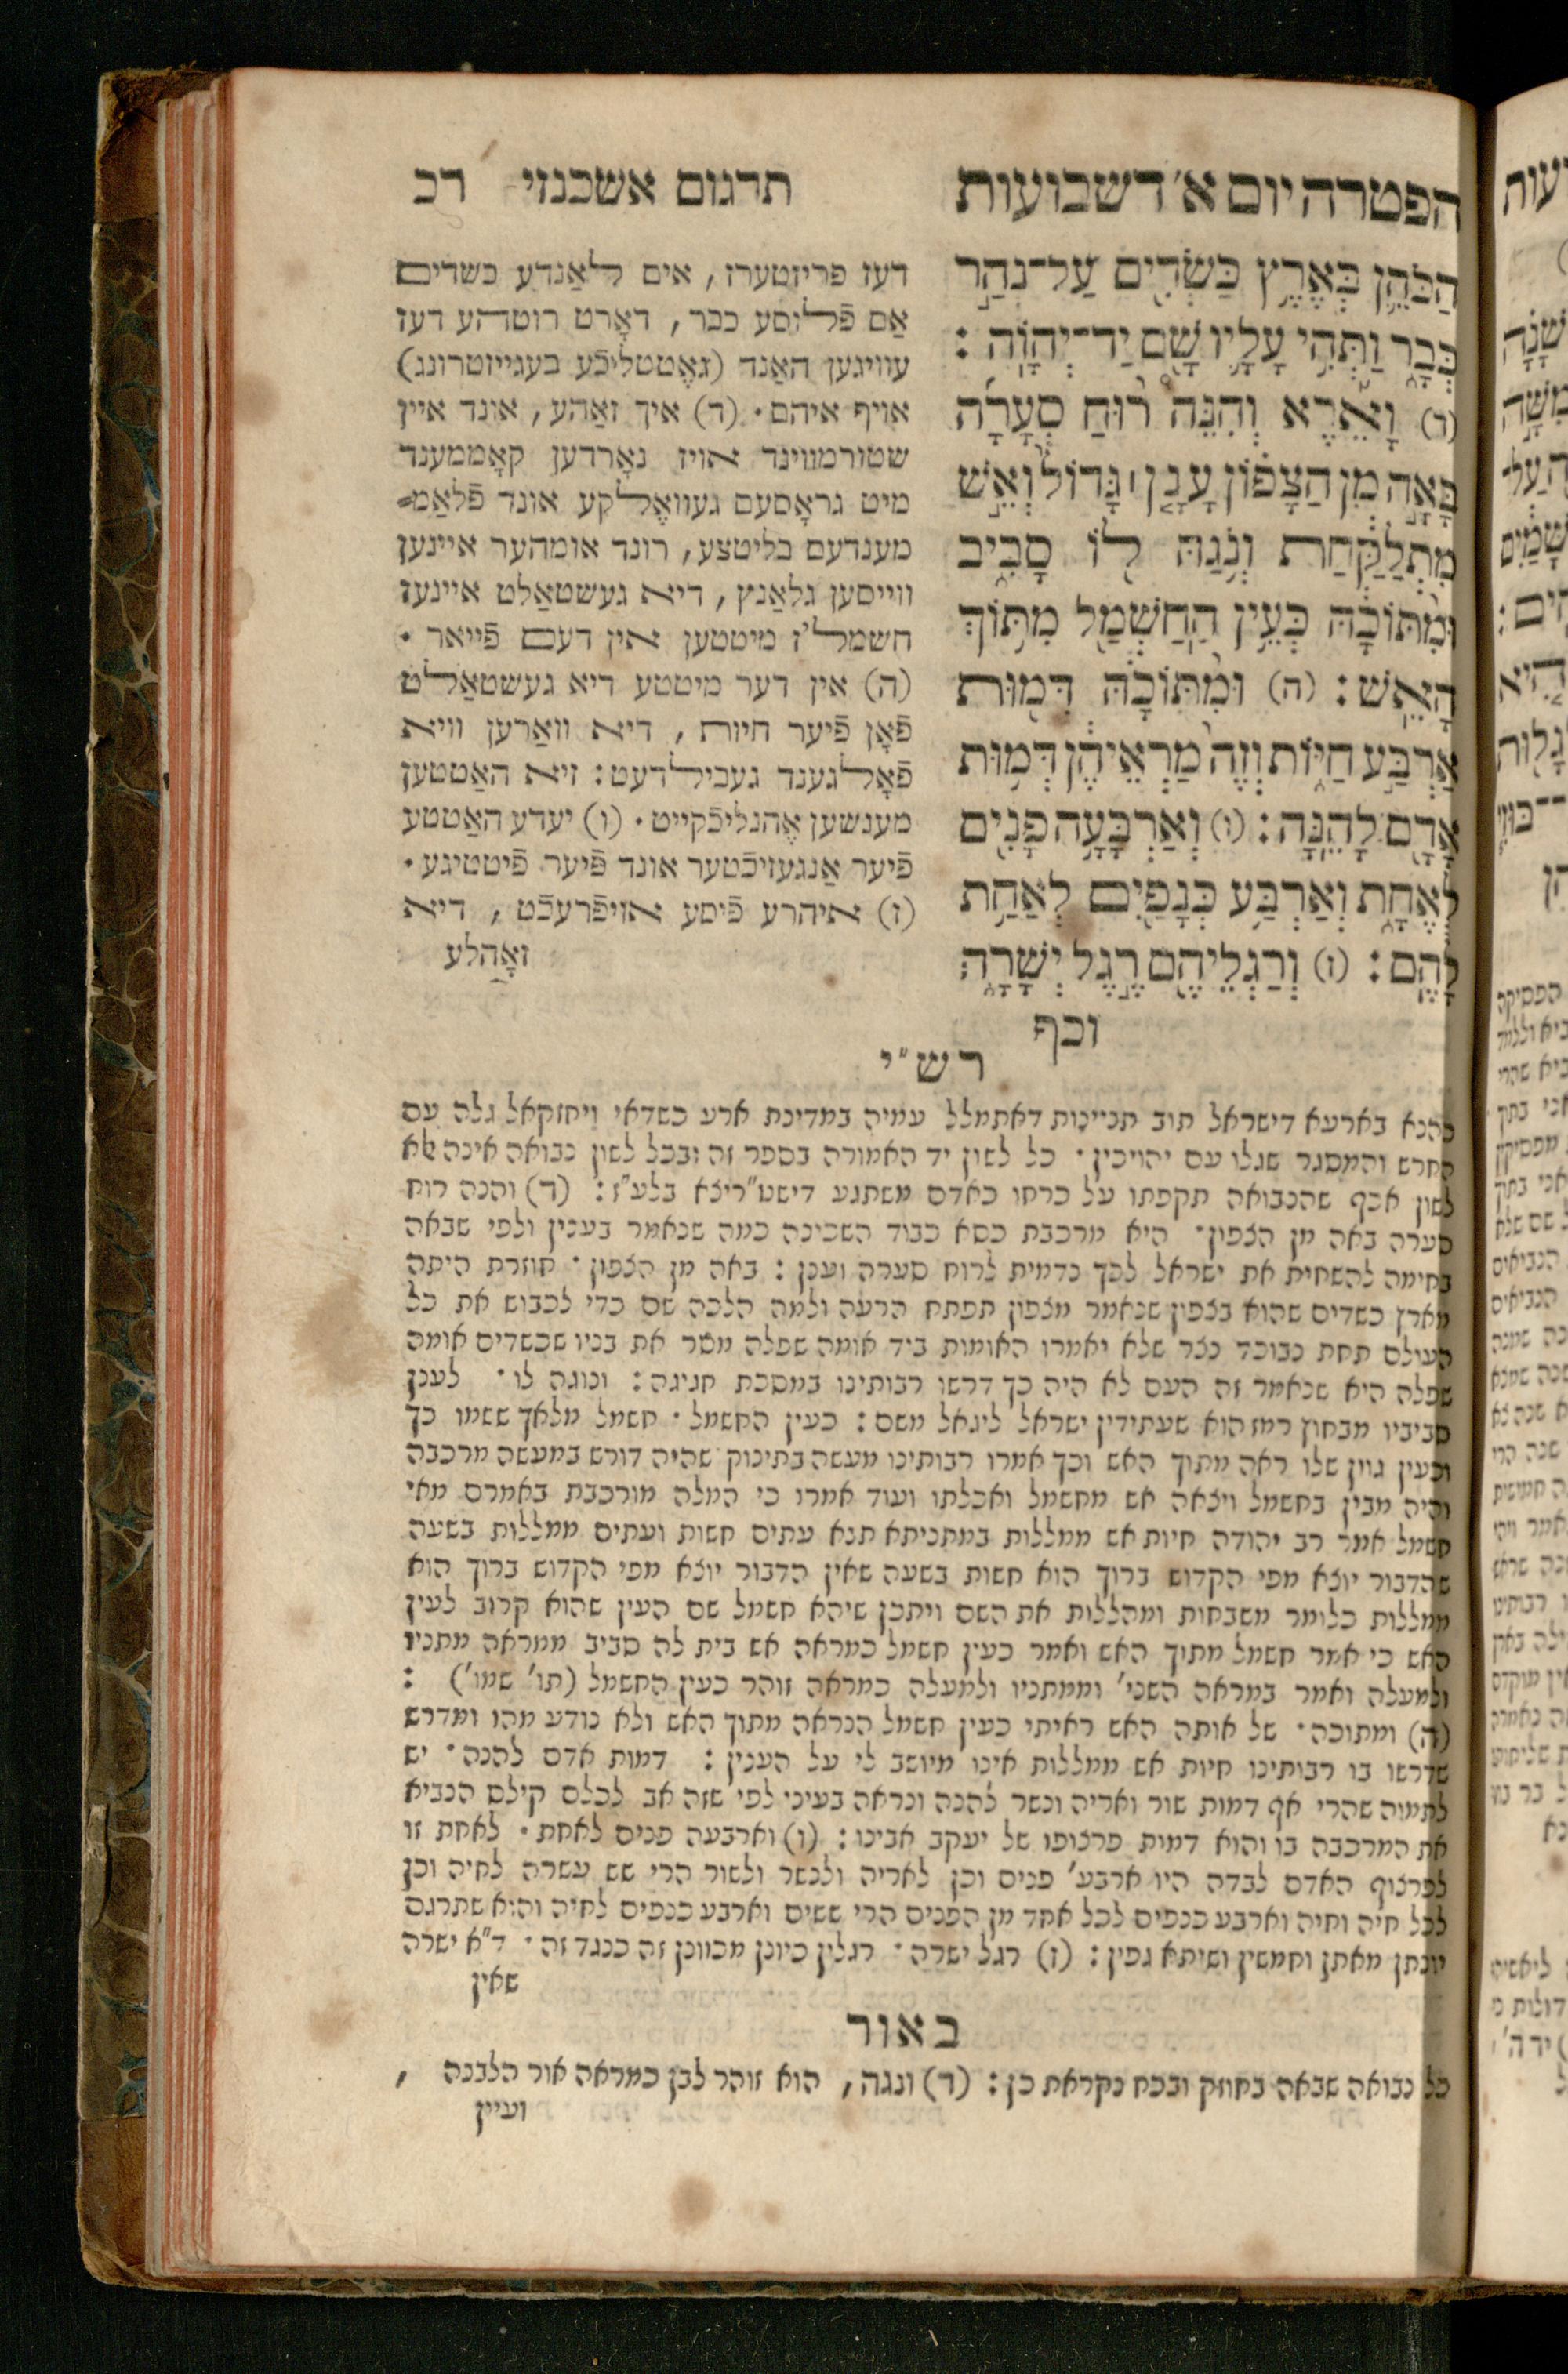 הפטרה יום א׳ דשבועות
תרגום אשכנזי רכ
הַכֹּהֵן בְּאֶרֶץ כַּשְׂדִּים עַל־נְהַר
כְּבָר וַתְּהִי עָלָיו שָׁם יַד־יְהוָה׃
(ד) וָאֵרֶא וְהִנֵּה רוּחַ סְעָרָה
בָּאָה מִן הַצָּפוֹן עָנָן ׀ גָּדוֹל וְאֵשׁ
מִתְלַקַּחַת וְנֹגַהּ לוֹ סָבִיב
וּמִתּוֹכָהּ כְּעֵין הַחַשְׁמַל מִתּוֹךְ
הָאֵשׁ׃ (ה) וּמִתּוֹכָהּ דְּמוּת
אַרְבַּע חַיּוֹת וְזֶה מַרְאֵיהֶן דְּמוּת
אָדָם לָהֵנָּה׃ (ו) וְאַרְבָּעָה פָנִים
לְאֶחָת וְאַרְבַּע כְּנָפַיִם לְאַחַת
לָהֶם׃ (ז) וְרַגְלֵיהֶם רֶגֶל יְשָׁרָה
וכף
דעז פריזטערז, אים לאַנדע כשדים
אַם פֿלוסע כבר, דאָרט רוטהע דעז
עוויגען האַנד (גאֶטטליכֿע בעגייזטרונג)
אויף איהם· (ד) איך זאַהע, אונד איין
שטורמווינד אויז נאָרדען קאָממענד
מיט גראָסעם געוואֶלקע אונד פֿלאַמ⸗
מענדעם בליטצע, רונד אומהער איינען
ווייסען גלאַנץ, דיא געשטאַלט איינעז
חשמל'ז מיטטען אין דעם פֿייאר·
(ה) אין דער מיטטע דיא געשטאַלט
פֿאָן פֿיער חיות, דיא וואַרען וויא
פֿאָלגענד געבילדעט: זיא האַטטען
מענשען אֶהנליכֿקייט· (ו) יעדע האַטטע
פֿיער אַנגעזיכֿטער אונד פֿיער פֿיטטיגע·
(ז) איהרע פֿיסע אויפֿרעכֿט, דיא
זאָהלע
רש״י
כהנא בארעא דישראל תוב תניינות דאתמלל עמיה במדינת ארע כשדאי ויחזקאל גלה עם
החרש והמסגר שגלו עם יהויכין· כל לשון יד האמורה בספר זה ובכל לשון נבואה אינה אלא
לשון אכף שהנבואה תקפתו על כרחו כאדם משתגע דישט״ריצא בלע״ז: (ד) והנה רוח
סערה באה מן הצפון· היא מרכבת כסא כבוד השכינה כמה שנאמר בענין ולפי שבאה
בחימה להשחית את ישראל לכך נדמית לרוח סערה וענן: באה מן הצפון· חוזרת היתה
מארץ כשדים שהוא בצפון שנאמר מצפון תפתח הרעה ולמה הלכה שם כדי לכבוש את כל
העולם תחת נבוכד נצר שלא יאמרו האומות ביד אומה שפלה מסר את בניו שכשדים אומה
שפלה היא שנאמר זה העם לא היה כך דרשו רבותינו במסכת חגיגה: ונוגה לו· לענן
סביביו מבחוץ רמז הוא שעתידין ישראל ליגאל משם: כעין החשמל· חשמל מלאך ששמו כך
וכעין גוון שלו ראה מתוך האש וכך אמרו רבותינו מעשה בתינוק שהיה דורש במעשה מרכבה
והיה מבין בחשמל ויצאה אש מחשמל ואכלתו ועוד אמרו כי המלה מורכבת באמרם מאי
חשמל אמר רב יהודה חיות אש ממללות במתניתא תנא עתים חשות ועתים ממללות בשעה
שהדבור יוצא מפי הקדוש ברוך הוא חשות בשעה שאין הדבור יוצא מפי הקדוש ברוך הוא
ממללות כלומר משבחות ומהללות את השם ויתכן שיהא חשמל שם העין שהוא קרוב לעין
האש כי אמר חשמל מתוך האש ואמר כעין חשמל כמראה אש בית לה סביב ממראה מתניו
ולמעלה ואמר במראה השני׳ וממתניו ולמעלה כמראה זוהר כעין החשמל (תו׳ שמו׳) :
(ה) ומתוכה· של אותה האש ראיתי כעין חשמל הנראה מתוך האש ולא נודע מהו ומדרש
שדרשו בו רבותינו חיות אש ממללות אינו מיושב לי על הענין: דמות אדם להנה· יש
לתמוה שהרי אף דמות שור ואריה ונשר להנה ונראה בעיני לפי שזה אב לכלם קילם הנביא
את המרכבה בו והוא דמות פרצופו של יעקב אבינו: (ו) וארבעה פנים לאחת· לאחת זו
לפרצוף האדם לבדה היו ארבע׳ פנים וכן לאריה ולנשר ולשור הרי שש עשרה לחיה וכן
לכל חיה וחיה וארבע כנפים לכל אחד מן הפנים הרי ששים וארבע כנפים לחיה והוא שתרגם
יונתן מאתן וחמשין ושיתא גפין: (ז) רגל ישרה· רגלין כיונן מכוונן זה כנגד זה· ד״א ישרה
שאין
באור
כל נבואה שבאה בחוזק ובכח נקראת כן: (ד) ונגה, הוא זוהר לבן כמראה אור הלבנה,
ועיין